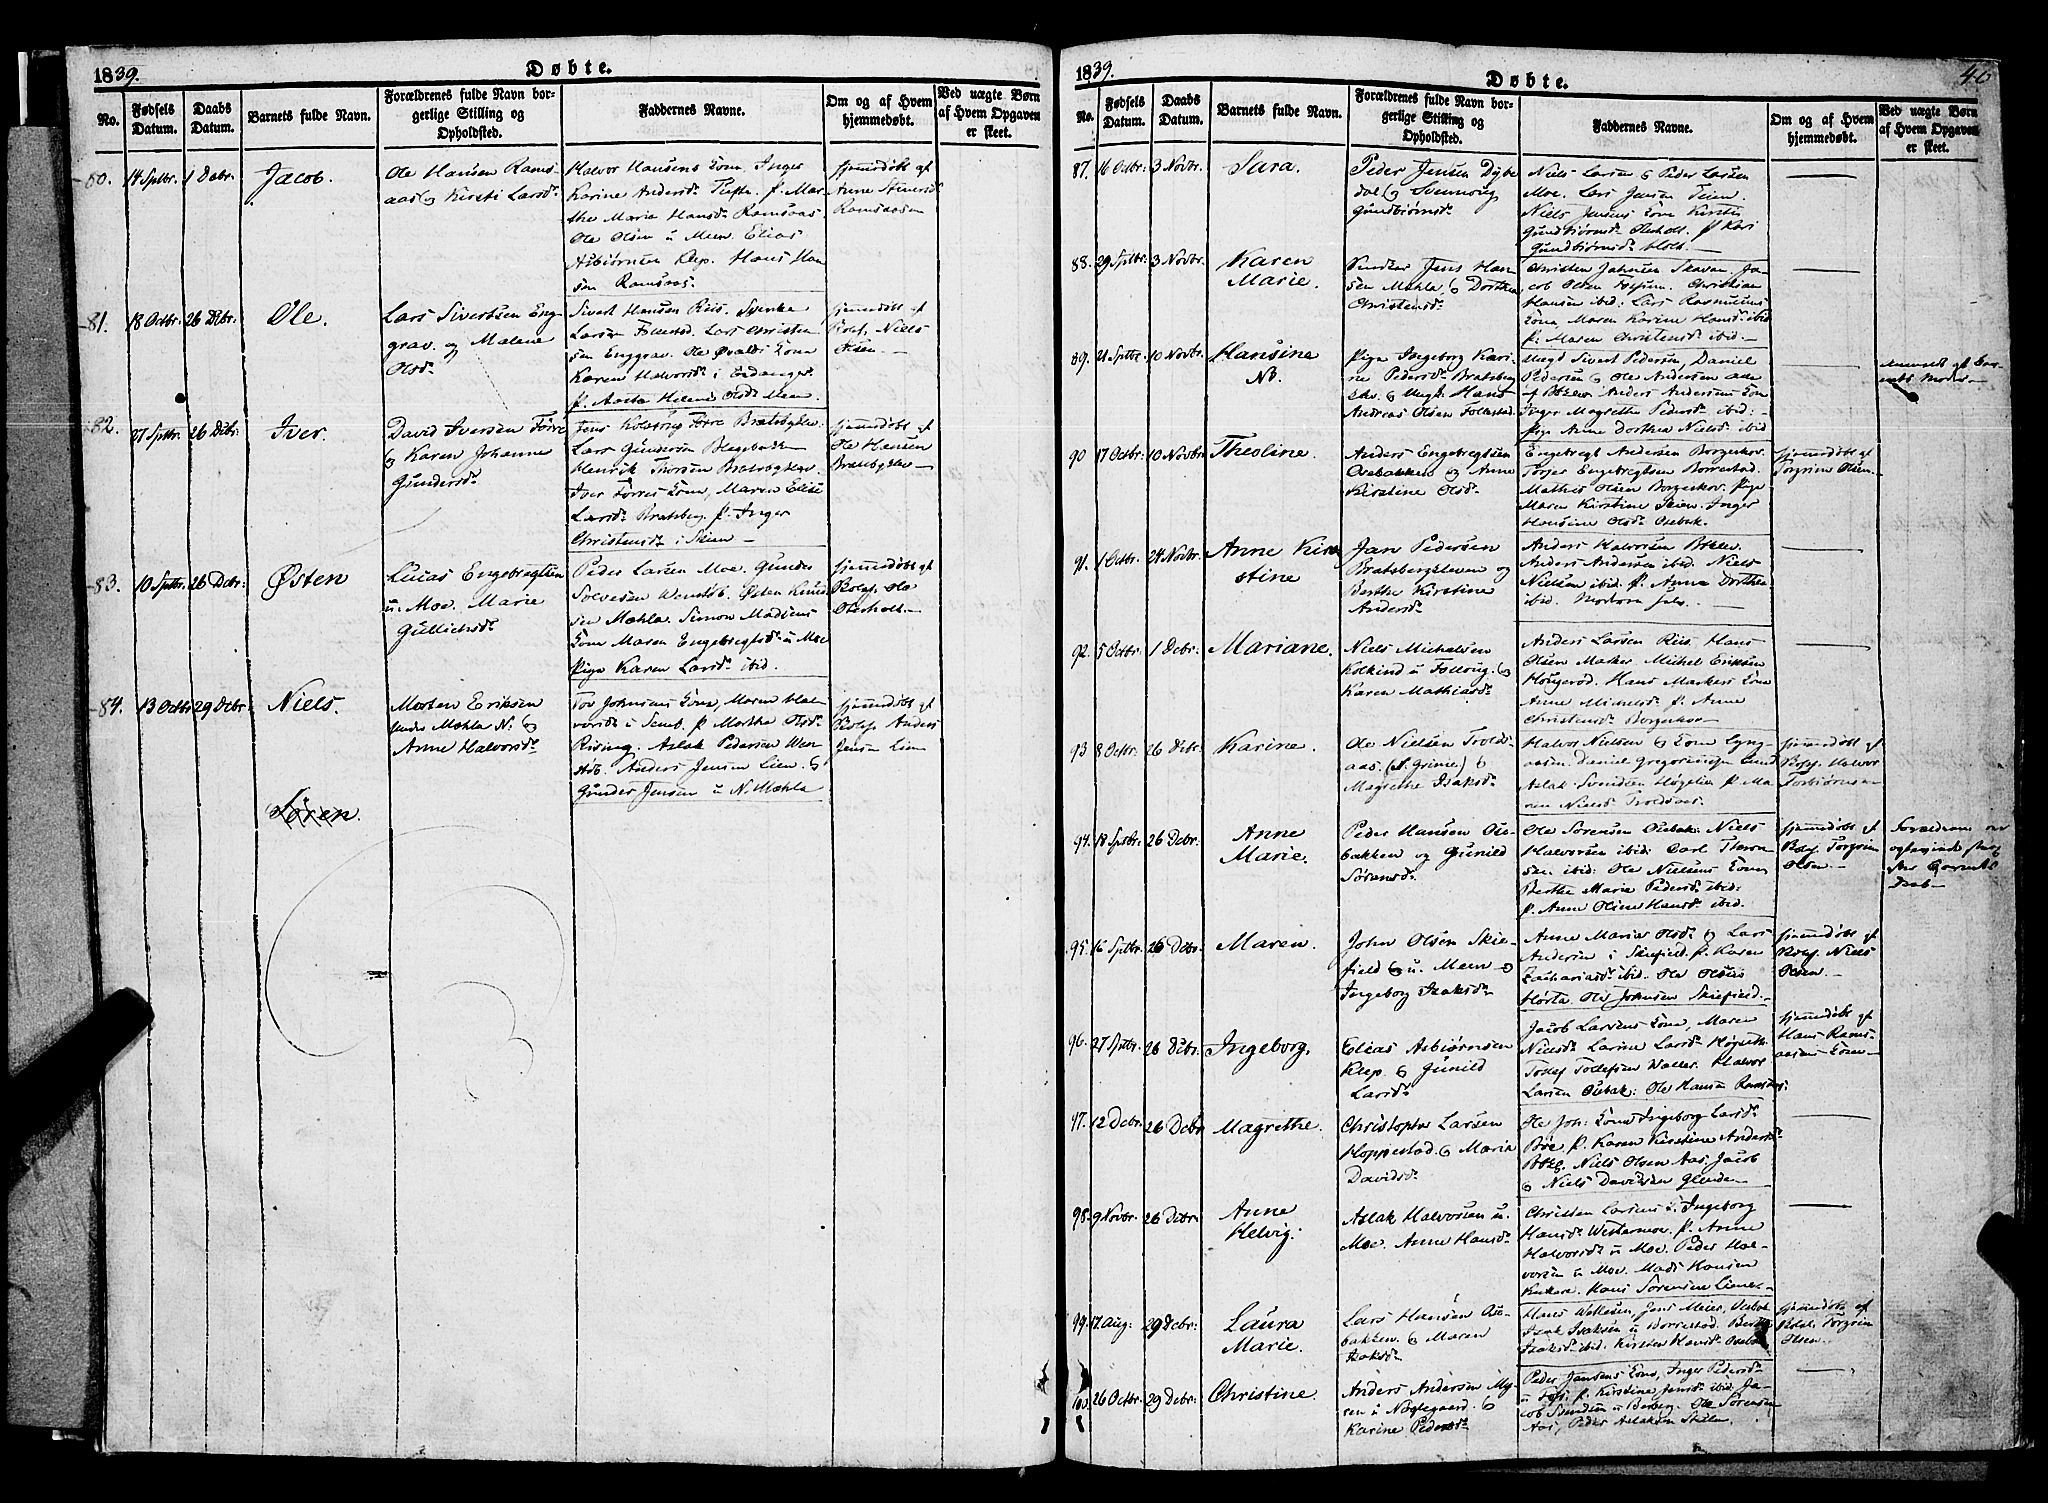 1839.
Døbte.
No.
Fødsels Datum.
Daabs Datum.
Barnets fulde Navn.
Forældrenes fulde Navn borgerlige Stilling og Opholdsted.
Faddernes Navne.
Om og af Hvem hjemmedøbt.
Ved uægte Børn af Hvem Opgaven er skeet.
80. 14 Sptbr. 1 Debr. Jacob.
Ole Hansen Rams-
aas og Kirsti Larsd.
Halvor Hansens Kone, Inger
Karine Andersd. Tufte. P. Mar-
the Maria Hansd. Ramsaas
Ole Olsen u Meen. Elias
Asbiørnsen Klep. Hans Han
sen Ramsaas.
hjemmedøbt af
Anne
Ramsaasen
81. 18 Octbr. 26 Debr. Ole.
Lars Sivertsen Eng-
grav. og Malene
Olsd.
Sivert Hansen Riis.
Larsen Follestad. Lars Christen
sen Enggrav. Ole Kone
Karen Halvorsd. i
P. Helene Olsd. Meen.
hjemmedøbt af
Niels
Olsen.
82. 27 Sptbr. 26 Debr. Iver.
David Iversen
og Karen Johanne
Gundersd.
Jens Bratsbgklev.
Lars Gundersen
Henrik Thorsen Bratsbgklev.
Iver Kone, Maren Elise
Larsd. Bratsberg. P. Inger
Christensd. i Skien
hjemmedøbt af
Ole Hansen
Bratsbgklev
83. 10 Sptbr. 26 Debr. Østen
Lucas Engebregtsen
u. Moe. Marie
Gullichsd.
Peder Larsen Moe. Gunder
Solvesen Wenstøb. Østen Knud
sen Mæhla. Simon Madsens
Kone Maren Engebregtsd. u Moe
Pige Karen Larsd. ibid.
hjemmedøbt af
Ole
Oterholt
84. 13 Octbr. 29 Debr. Niels.
Morten Eriksen
Mæhla N. og
Anne Halvorsd.
Tov Johnsens Kone, Maren Hal-
vorsd. u P. Marthe Olsd.
Rising. Aslak Pedersen Wen-
støb. Anders Jensen Lien. og
Gunder Jensen u N. Mæhla
hjemmedøbt af
Anders
Jensen Lien
Søren
1839.
Døbte.
40
No.
Fødsels Datum.
Daabs Datum.
Barnets fulde Navn.
Forældrenes fulde Navn borgerlige Stilling og Opholdsted.
Faddernes Navne.
Om og af Hvem hjemmedøbt.
Ved uægte Børn af Hvem Opgaven er skeet.
87. 16 Octbr. 3 Novbr. Sara.
Peder Jensen Dybe
dal og
Gundbiørnsd.
Niels Larsen & Peder Larsen
Moe. Lars Jensen
Niels Jensens Kone Kirsti
Gundbiørnsd. Oterholt. P. Kari
Gundbiørnsd. Holt.
88. 29 Sptbr. 3 Novbr. Karen
Marie.
Jens Han
sen Mæhla, & Dorthea
Christensd.
Christen Jahnsen Skavan. Ja-
cob Olsen Christian
Hansen ibid. Lars Rasmusens
Kone, Maren Karine Hansd. ibid
P. Maren Christensd. ibid.
89. 21 Sptbr. 10 Novbr. Hansine
NB.
Pige Ingeborg Kari-
ne Pedersd. Bratsberg
klv. & Ungk. Hans
Andreas Olsen Follestad.
Ungk Sivert Pedersen, Daniel
Pedersen & Ole Andersen alle
af Anders Andersens Kone
Inger Magrethe Pedersd. ibid.
Pige Anne Dorthea Nielsd. ibid
Anmeldt af Bar-
nets Moder
90 17 Octbr. 10 Novbr Theoline.
Anders Engebregtsen
Osebakken og Anne
Kirstine Olsd.
Engebregt Andersen Borgeskov.
Torger Engebregtsen Borrestad.
Mathis Olsen Borgeskov. Pige
Maren Kirstine Skien. Inger
Hansine Olsd. Osebak.
hjemmedøbt af
Torgrim Olsen
91. 1 Octbr. 24 Novbr. Anne Kir
stine
Jan Pedersen
Bratsbergkleven og
Berthe Kirstine
Andersd.
Anders Halvorsen
Anders Andersen ibid. Niels
Nielsen ibid. P. Anne Dorthea
ibid.
92. 5 Octbr. 1 Debr. Mariane.
Niels Michelsen
og
Karen Mathiasd.
Anders Larsen Riis. Hans
Olsen Marker. Michel Eriksen
Hans Markers Kone
Anne Michelsd. P. Anne
Christensd. Borgeskov
93 8 Octbr. 26 Debr. Karine.
Ole Nielsen Trolds
aas. (S. Grime.) &
Magrethe Isaksd.
Halvor Nielsen & Kone Lyng-
aasen. Daniel Gregoriussen
Aslak P. Ma-
ren Nielsd. Troldsaas.
hjemmedøbt af
Halvor
Torbiørnsen
94. 18 Sptbr. 26 Debr. Anne
Marie.
Peder Hansen Ose-
bakken og Gunild
Sørensd.
Ole Sørensen Osebak. Niels
Halvorsen ibid. Carl Thoren
sen ibid. Ole Nielsens Kone
Berthe Marie Pedersd. ibid.
P. Anne Olsine Hansd. ibid.
hjemmedøbt af
Torgrim
Olsen
Forældrene
Barnets
Daab
95. 16 Sptbr. 26 Debr. Maren.
John Olsen Skie-
field & u. Meen
Ingeborg Isaksd.
Anne Maries Olsd. & Lars
Andersen i Skiefield. P. Karen
Zachariasd. ibid. Ole Olsens
Hørta. Ole Johnsen Skiefield.
hjemmedøbt af
Niels
Olsen.
96. 27 Sptbr. 26 Debr. Ingeborg.
Elias Asbiørnsen
Klep. & Gunild
Larsd.
Jacob Larsens Kone, Maren
Nielsd. Larine Larsd.
Tollef Tollefsen Waller. Halvor
Larsen Osebak. Ole Hansen Ramsaas.
hjemmedøbt af
Hans Rams-
aasens Kone
97. 12 Debr. 26 Debr Magrethe.
Christopher Larsen
Hoppestad. & Maria
Davidsd.
Ole Joh: Kone Ingeborg Larsd.
Bøe. P. Karen Kirstine Andersd.
Niels Olsen Aas. Jacob
& Niels Davidsen Glende
98. 9 Novbr. 26 Debr. Anne
Helvig.
Aslak Halvorsen u.
Moe. Anne Hansd.
Christen Larsens u. Ingeborg
Hansd. Westermoe. P. Anne
Halvorsd. u Moe. Peder Hal-
vorsen u Moe. Mads Hansen
Hans Sørensen
99. 17 Aug: 29 Debr. Laura
Marie.
Lars Hansen Ose-
bakken. & Maren
Isaksd.
Hans Jens Meier, Osebak
Isak Isaksen u Borrestad. Berthe
Isaksd. ibid. Kirsten Hansd. Osebak
hjemmedøbt af
Torgrim
Olsen.
100. 26 Octbr. 29 Debr. Christine.
Anders Andersen My-
ren u Nøglegaard. &
Karine Pedersd.
Peder Jansens Kone, Inger Pedersd.
P. Kirstine Jansd. ibid. Ja-
cob Svendsen u Berberg. Ole Sørensen
Aas, Peder Aslaksen